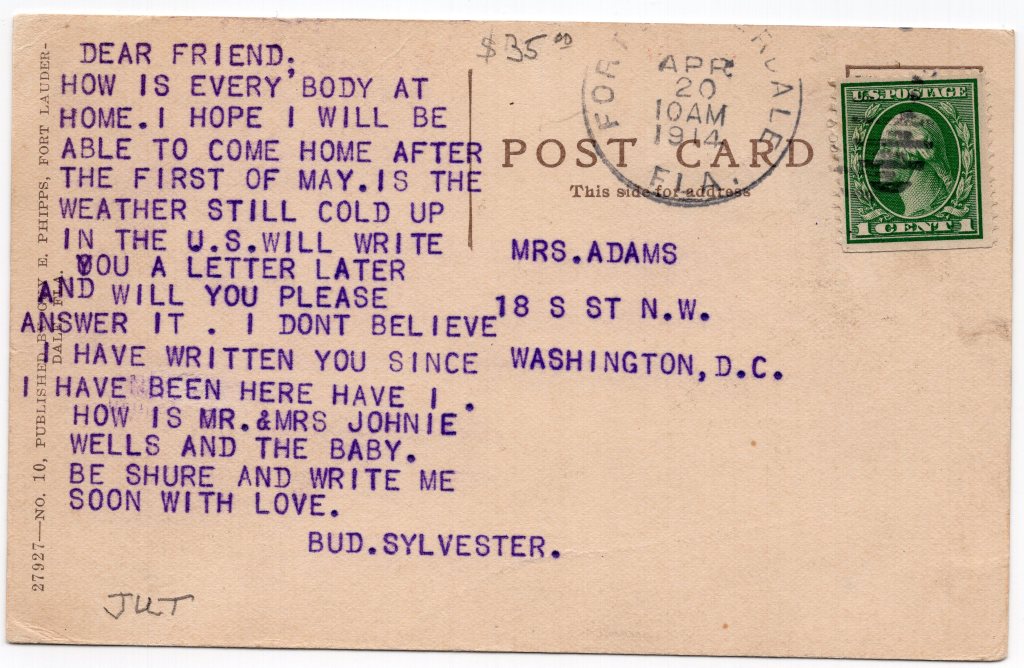 DEAR FRIEND;
HOW IS EVERY BODY AT
HOME.I HOPE I WILL BE
ABLE TO COME HOME AFTER
THE FIRST OF MAY.IS THE
WEATHER STILL COLD UP
IN THE U.S.WILL WRITE
YOU A LETTER LATER
AND WILL YOU PLEASE
ANSWER IT . I DONT BELIEVE
I HAVE WRITTEN YOU SINCE
I HAVE BEEN HERE HAVE I .
HOW IS MR.&MRS JOHNIE
WELLS AND THE BABY.
BE SHURE AND WRITE ME
SOON WITH LOVE.
BUD.SYLVESTER.
JUT
$35.00
APR
20
10AM
1914
FLA.
U.S.POSTAGE
1 CENT 1
POST CARD
This side for address
MRS.ADAMS
18 S ST N.W.
WASHINGTON,D.C.
27927—NO. 10, PUBLISHED BY E. PHIPPS, FORT LAUDER-
DALE, FLA.